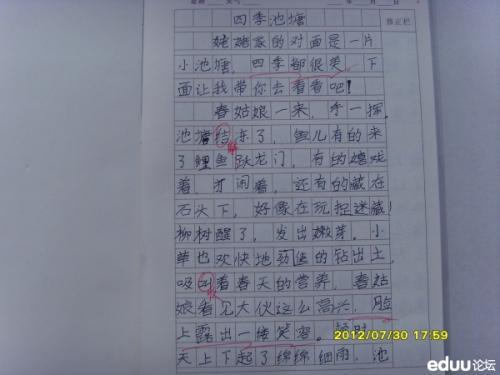 年 月 日
修正栏
四季池塘
姥姥家的对面是一片
小池塘，四季都很美，下
面让我带你去看看吧！
春姑娘一来，手一挥，
池塘结冻了，鱼儿有的来
解
了鲤鱼跃龙门，有的嬉戏
着、打闹着，还有的藏在
石头下，好像在玩捉迷藏！
柳树醒了，发出嫩芽。小
草也欢快地的钻出土，
吸着春天的营养，春姑
收
娘看见大伙这么高兴，脸
上露出一缕笑容。
天上下起了绵绵细雨，池
2012/07/30 17:59
eduu论坛